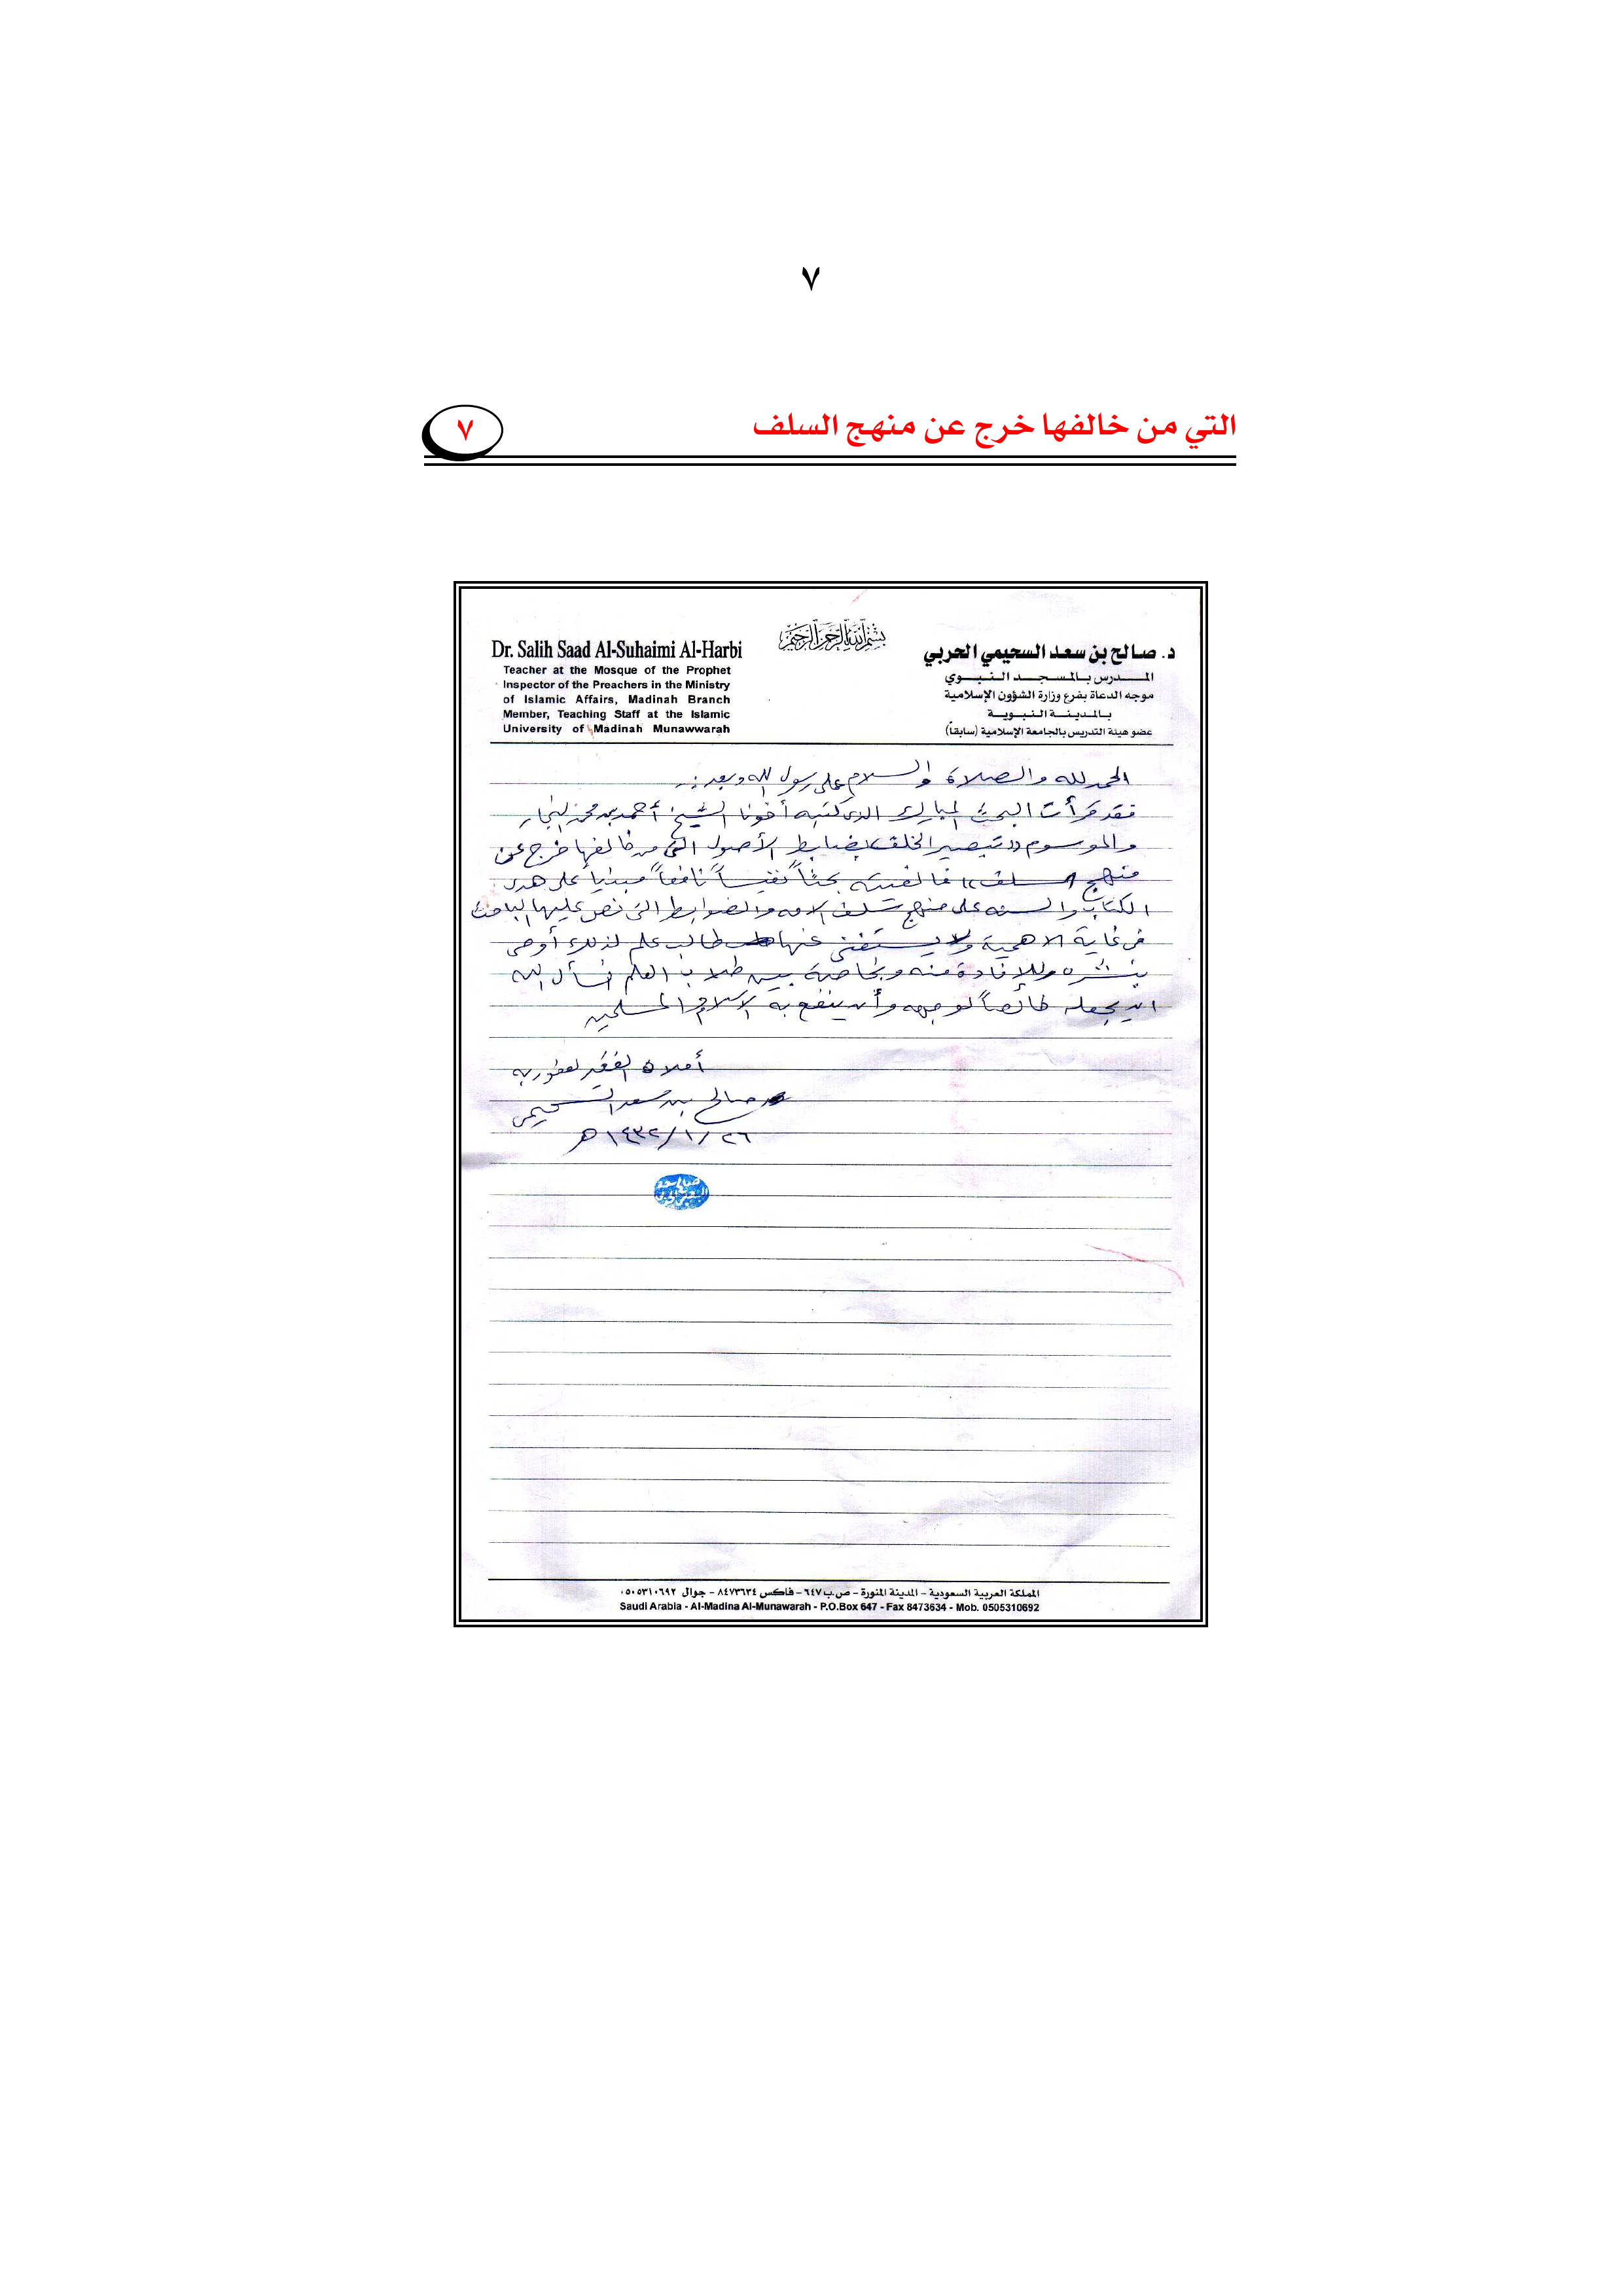 ٧
التي من خالفها خرج عن منهج السلف
٧
بسم الله الرحمن الرحيم
د. صالح بن سعد السحيمي الحربي
المدرس بالمسجد النبوي
موجه الدعاة بفرع وزارة الشؤون الإسلامية
بالمدينة النبوية
عضو هيئة التدريس بالجامعة الإسلامية (سابقاً)
Dr. Salih Saad Al-Suhaimi Al-Harbi
Teacher at the Mosque of the Prophet
Inspector of the Preachers in the Ministry
of Islamic Affairs, Madinah Branch
Member, Teaching Staff at the Islamic
University of Madinah Munawwarah
الحمد لله والصلاة والسلام على رسول الله وبعد :..
فقد قرأت البحث المبارك الذي كتبه أخونا الشيخ أحمد بن محمد النجار
والموسوم (( تبصير الخلف بضابط الأصول التي من خالفها خرج عن
منهج السلف )) فألفيته بحثاً نفيساً نافعاً مبنياً على هدي
الكتاب والسنة على منهج سلف الأمة والضوابط التي نص عليها الباحث
في غاية الأهمية ولا يستغني عنها طالب علم لذلك أوصي
بنشره وللإفادة منه وبخاصة بين طلاب العلم فنسأل الله
أن يجعله خالصاً لوجهه وأن ينفع به الإسلام والمسلمين
أملاه الفقير لعفو ربه
صالح بن سعد السحيمي
٢٦/ ١/ ١٤٣٢هـ
المملكة العربية السعودية - المدينة المنورة - ص.ب ٦٤٧ - فاكس ٨٤٧٣٦٣٤ - جوال ٠٥٠٥٣١٠٦٩٢
Saudi Arabia - Al-Madina Al-Munawarah - P.O.Box 647 - Fax 8473634 - Mob. 0505310692